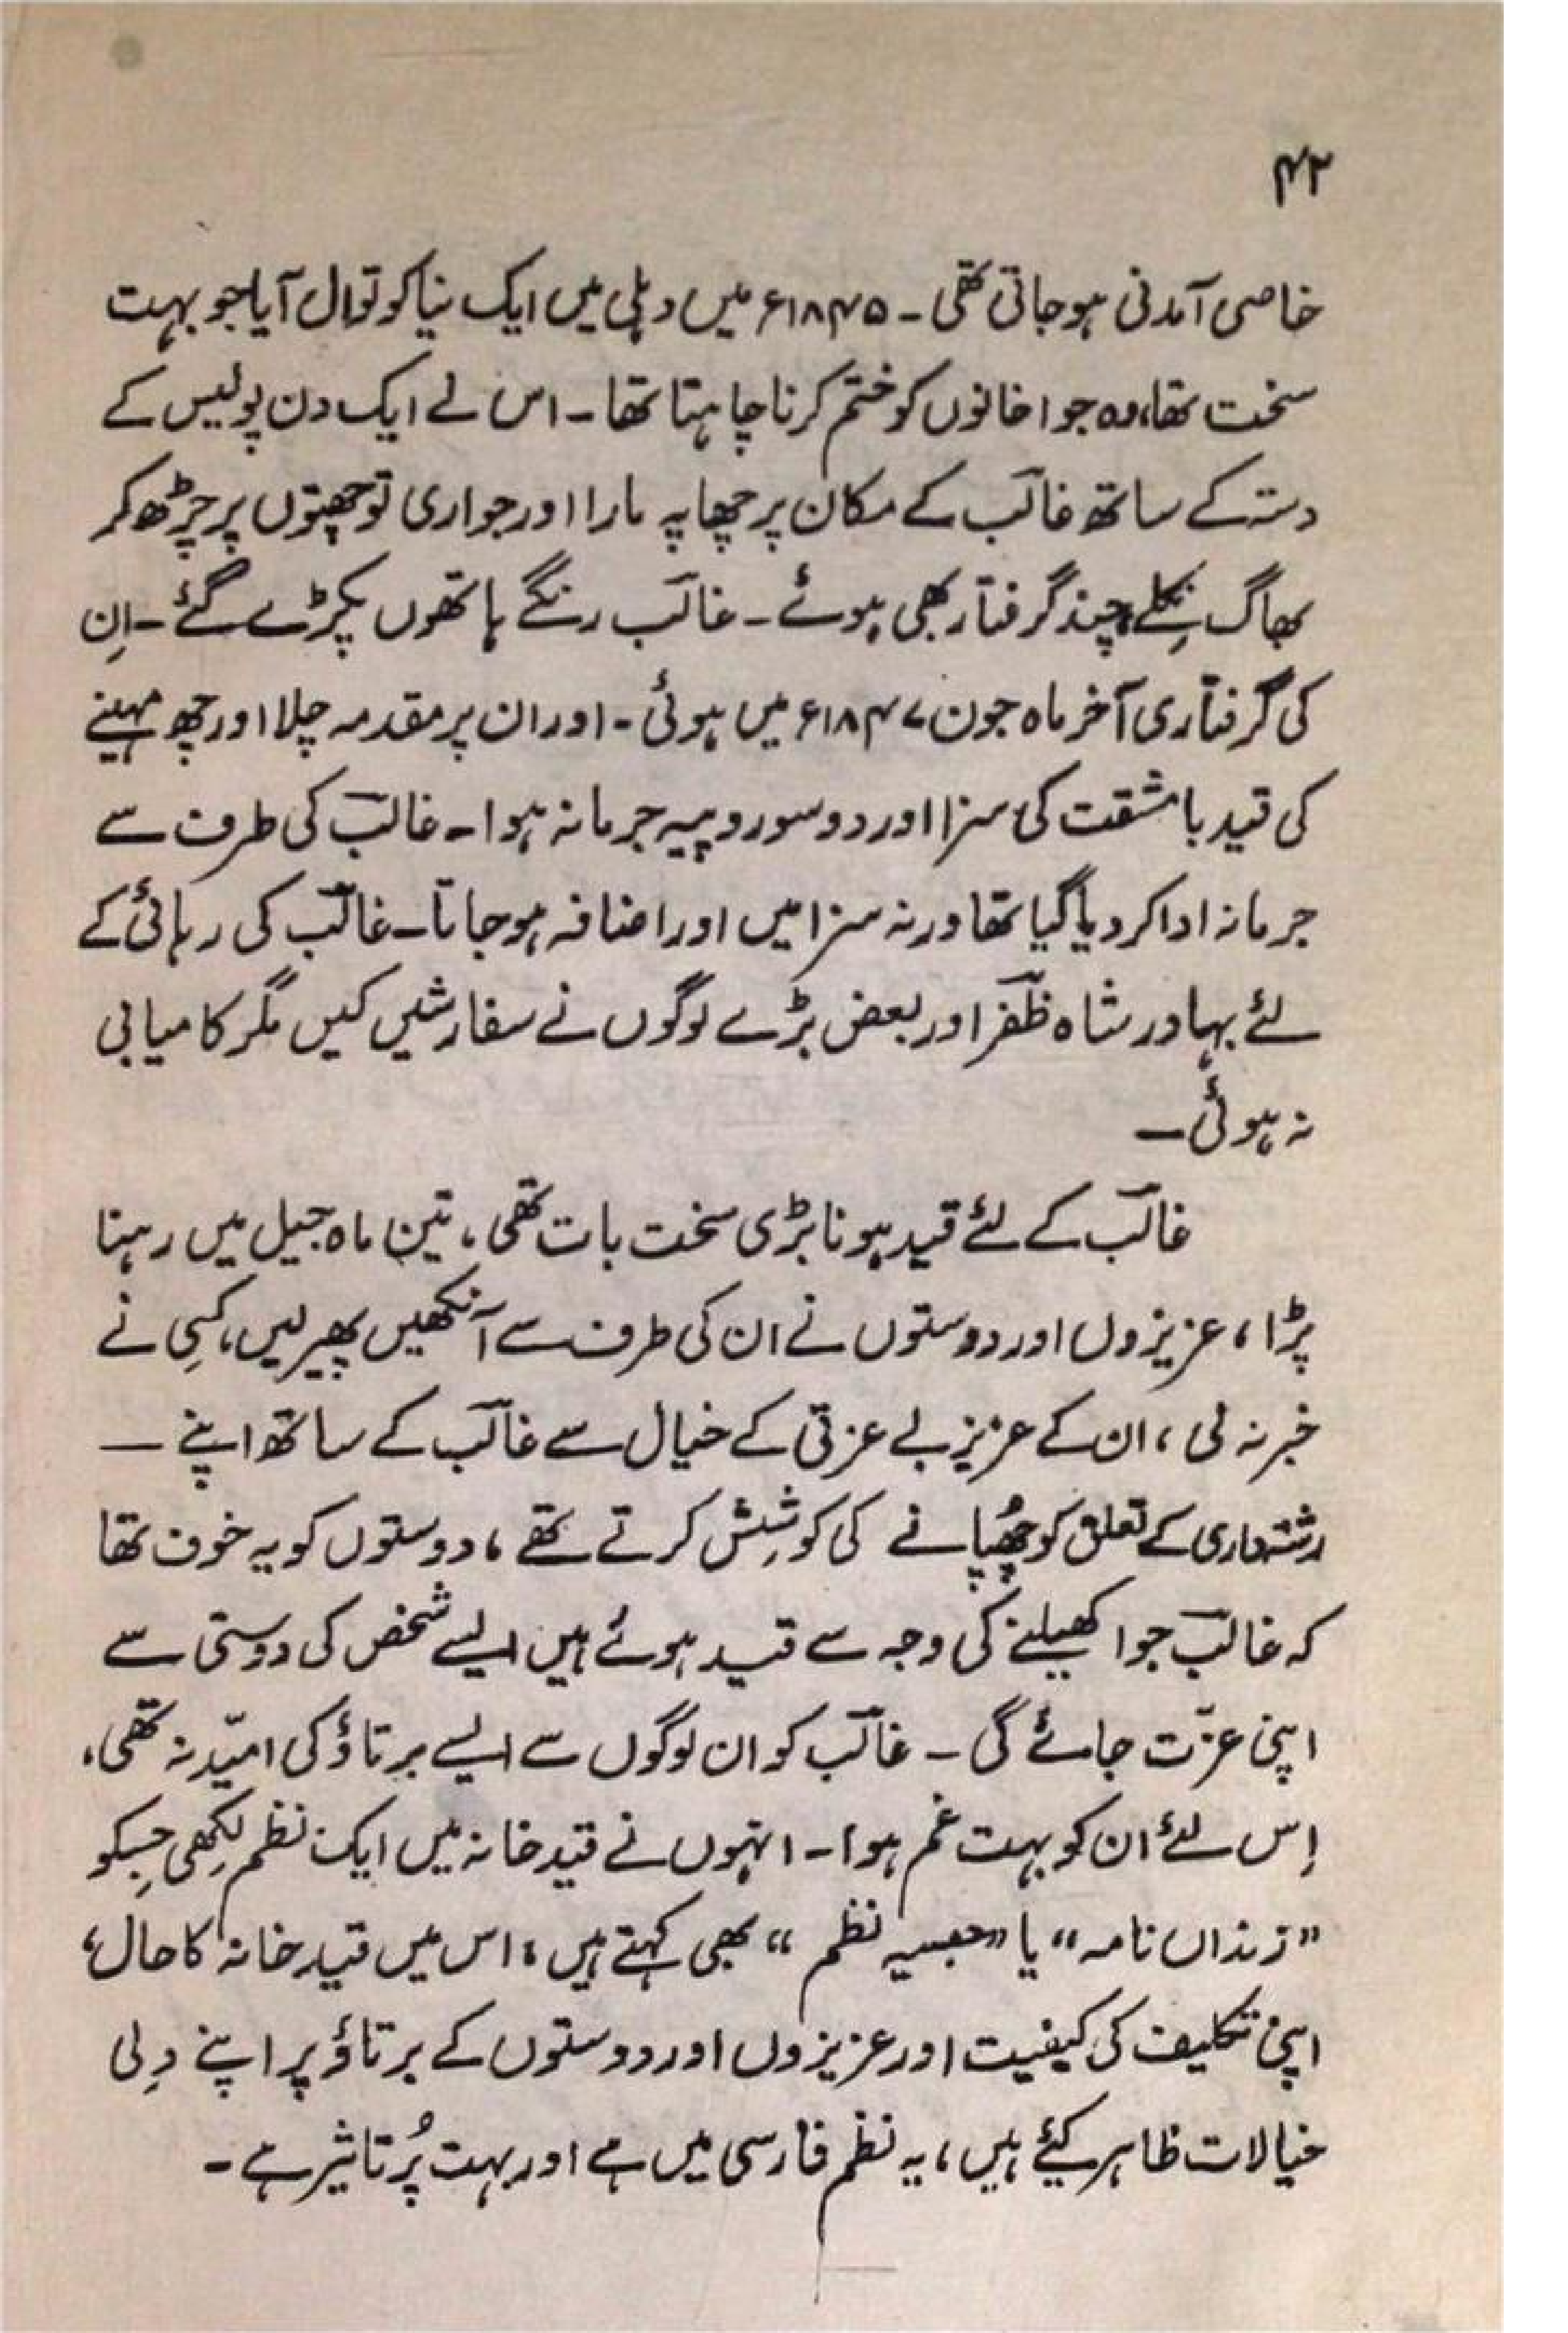 ۴۲
خاصی آمدنی ہو جاتی تھی ۔ ۱۸۴۵ء میں دہلی میں ایک نیا کوتوال آیا جو بہت
سخت تھا، وہ جوا خانوں کو ختم کرنا چاہتا تھا ۔ اس نے ایک دن پولیس کے
دستہ کے ساتھ غالبؔ کے مکان پر چھاپہ مارا اور جواری تو چھتوں پر چڑھ کر
بھاگ نِکلے، چند گرفتار بھی ہوئے ۔ غالبؔ رنگے ہاتھوں پکڑے گئے ۔ اِن
کی گرفتاری آخر ماہ جون ۱۸۴۷ء میں ہوئی ۔ اور ان پر مقدمہ چلا اور چھ مہینے
کی قید با مشقت کی سزا اور دو سو روپیہ جرمانہ ہوا ۔ غالبؔ کی طرف سے
جرمانہ ادا کر دیا گیا تھا ورنہ سزا میں اور اضافہ ہو جاتا ۔ غالبؔ کی رہائی کے
لئے بہادر شاہ ظفرؔ اور بعض بڑے لوگوں نے سفارشیں کیں مگر کامیابی
نہ ہوئی ۔
غالبؔ کے لئے قید ہونا بڑی سخت بات تھی ، تین ماہ جیل میں رہنا
پڑا ، عزیزوں اور دوستوں نے ان کی طرف سے آنکھیں پھیر لیں ، کسِی نے
خبر نہ لی ، ان کے عزیز بے عزتی کے خیال سے غالبؔ کے ساتھ اپنے —
رشتہ داری کے تعلق کو چھُپانے کی کوشِش کرتے تھے ، دوستوں کو یہ خوف تھا
کہ غالبؔ جوا کھیلنے کی وجہ سے قید ہوئے ہیں ایسے شخص کی دوستی سے
اپنی عزّت جائے گی ۔ غالبؔ کو ان لوگوں سے ایسے برتاؤ کی امیّد نہ تھی ،
اِس لئے ان کو بہت غم ہوا ۔ انہوں نے قید خانہ میں ایک نظم لکِھی جِسکو
”زنداں نامہ“ یا ”حبسیہ نظم “ بھی کہتے ہیں ، اس میں قید خانہ کا حال ،
اپنی تکلیف کی کیفیت اور عزیزوں اور دوستوں کے برتاؤ پر اپنے دِلی
خیالات ظاہر کئے ہیں ، یہ نظم فارسی میں ہے اور بہت پُر تاثیر ہے ۔